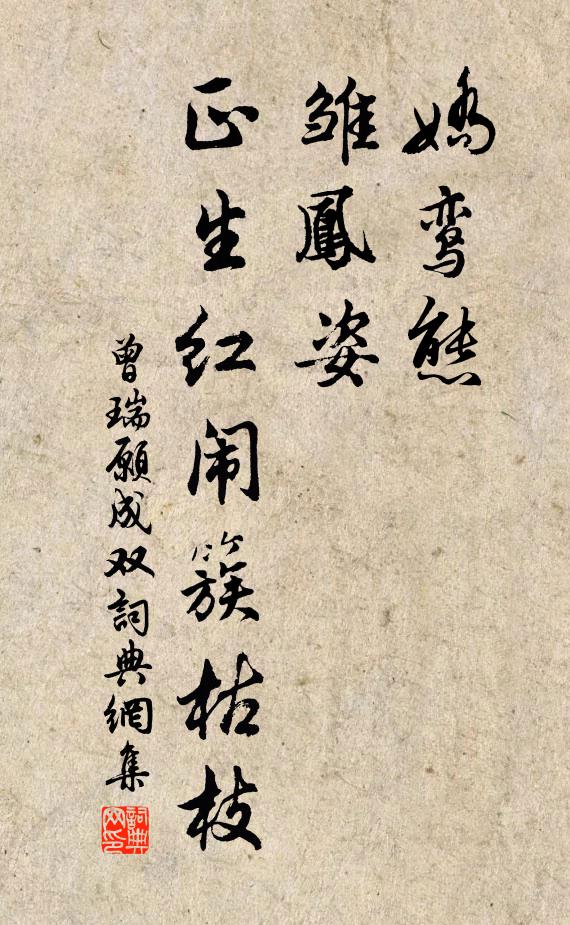 嬌鸾態
雏鳳姿
正生红闹簇枯枝
曾瑞願成双詞典網集
詞典网印